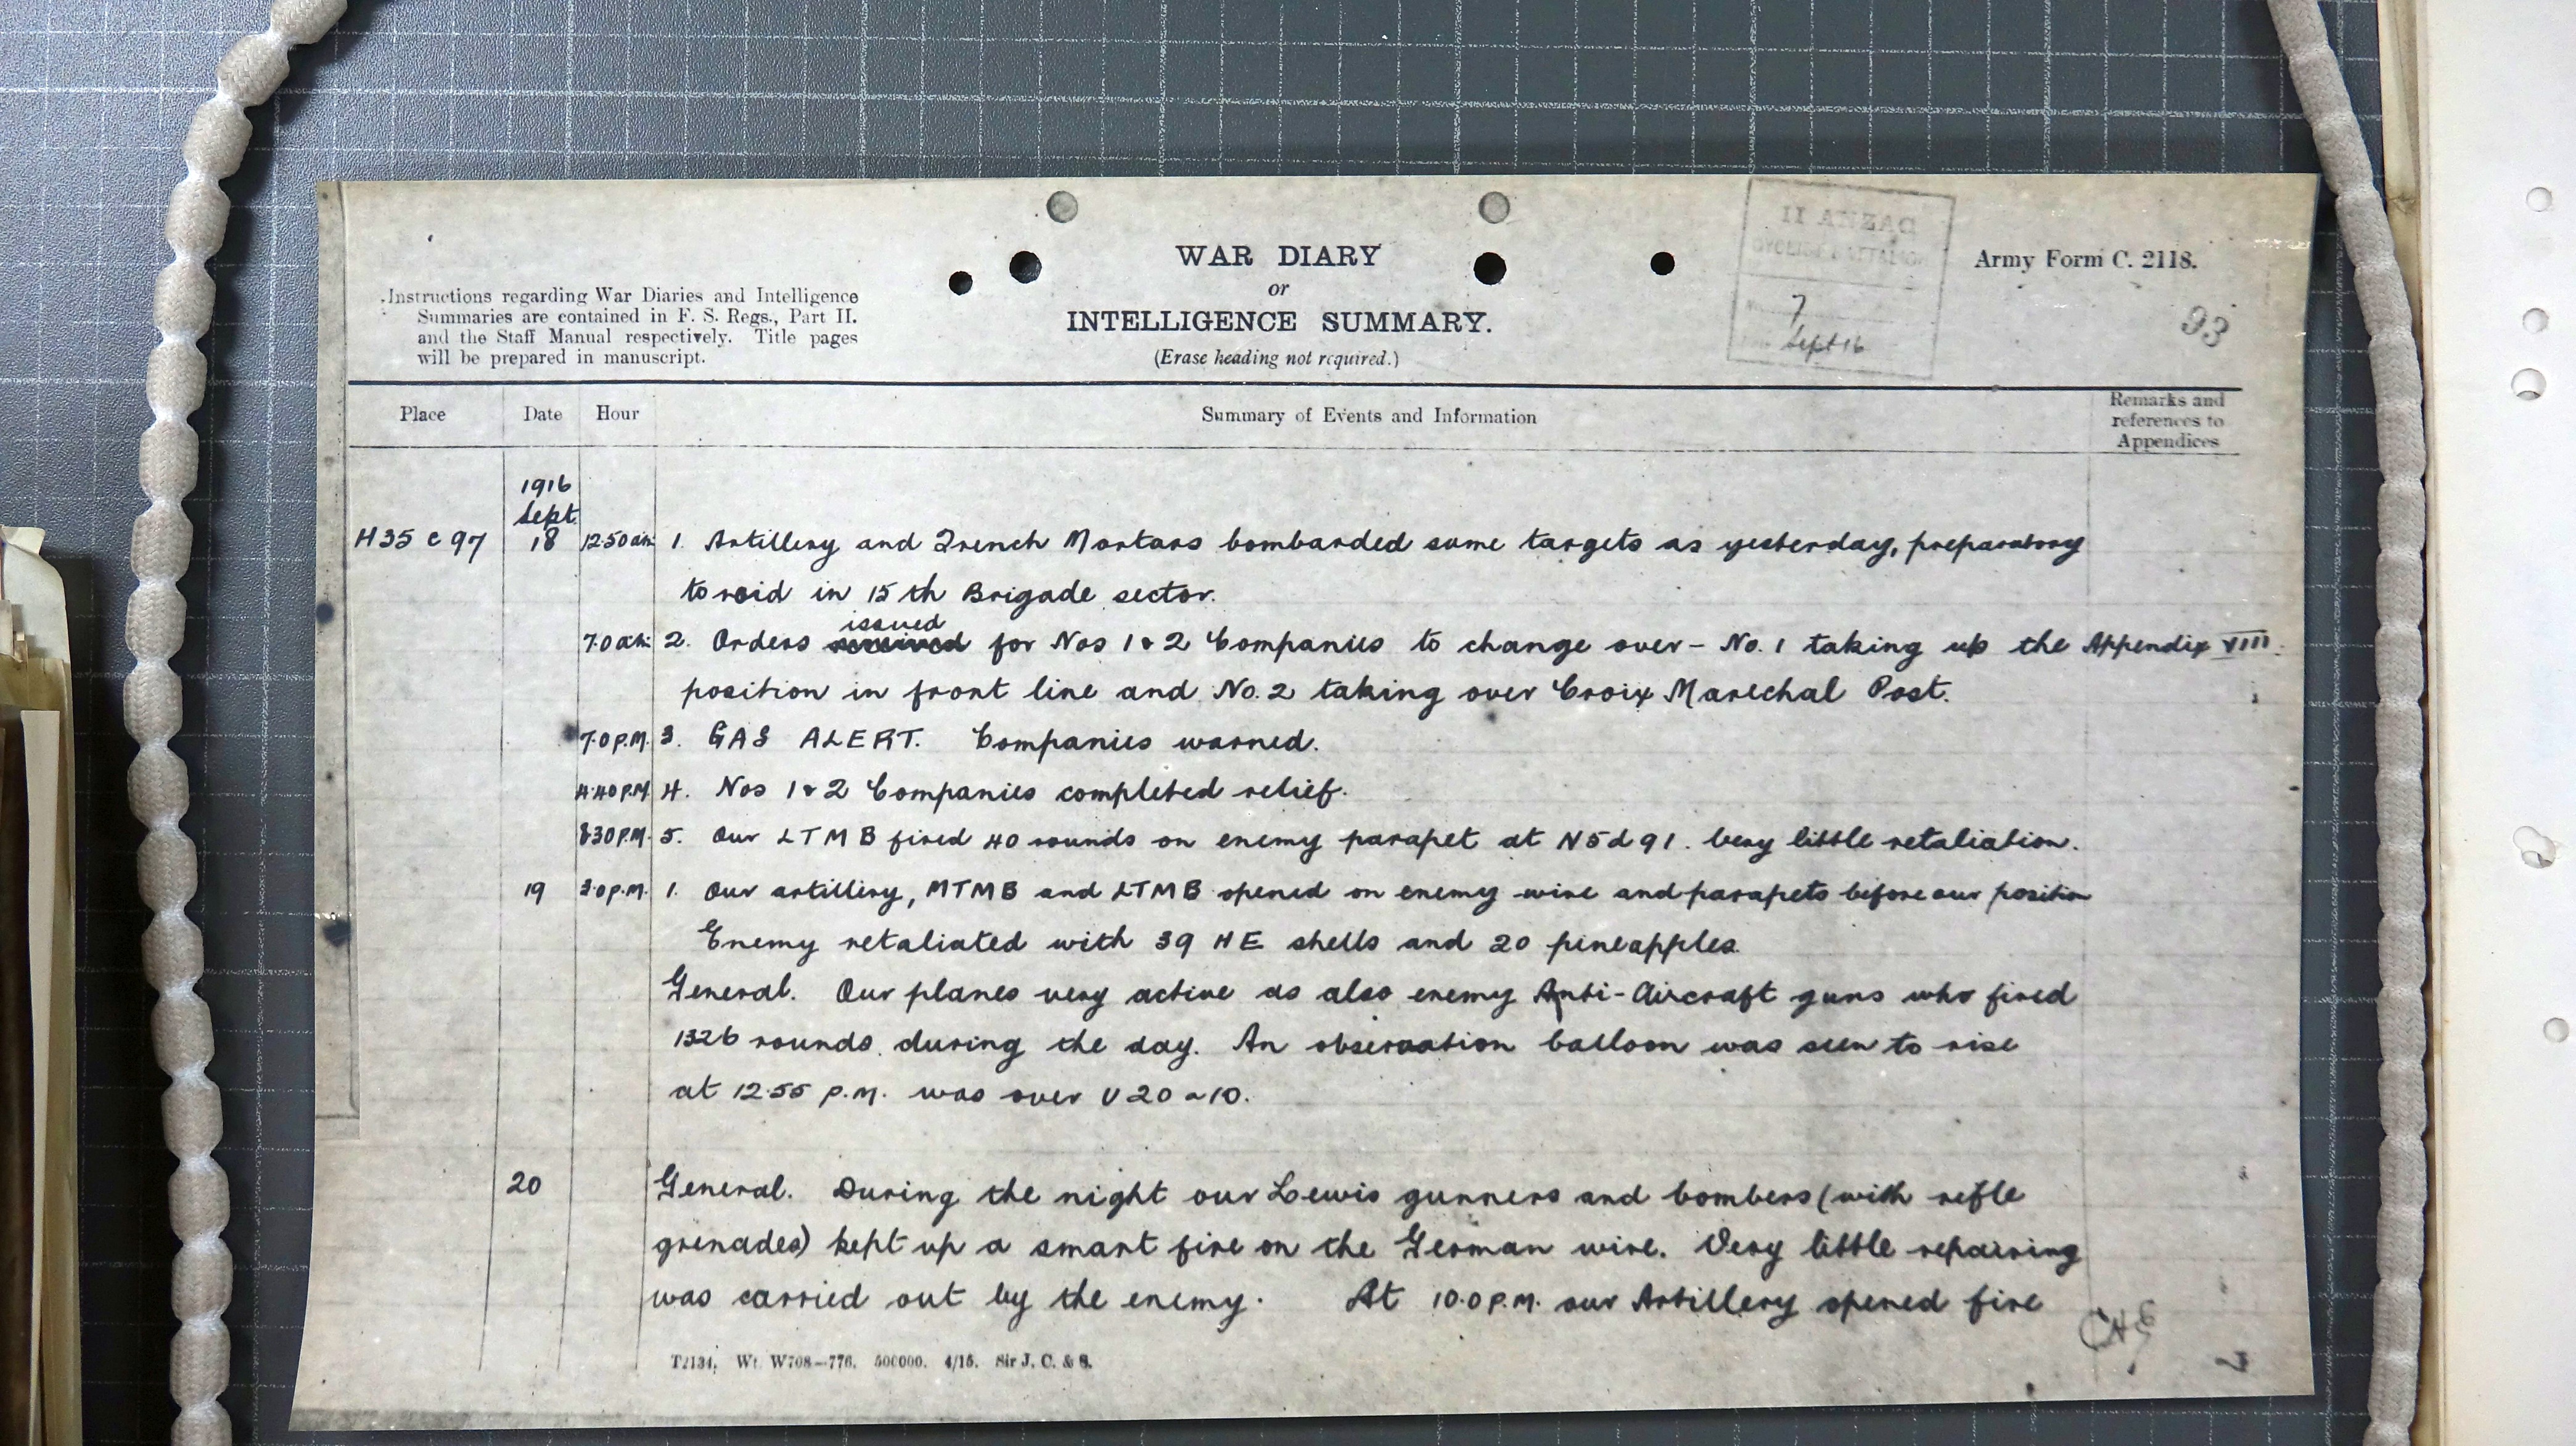 WAR DIARY
or
INTELLIGENCE SUMMARY.
(Erase heading not required.)
Army Form C. 2118.
Instructions regarding War Diaries and Intelligence
Summaries are contained in F. S. Regs., Part II.
and the Staff Manual respectively. Title pages
will be prepared in manuscript.
II ANZAC
CYCLIST BATTALION
7
Sept 16
93
Place Date Hour Summary of Events and Information Remarks and references to Appendices
1916
Sept.
H35 c 97 18 12.50 am 1. Artillery and Trench Mortars bombarded same targets as yesterday, preparatory
to raid in 15th Brigade sector.
issued
7.0 am 2. Orders received for Nos 1 & 2 Companies to change over - No. 1 taking up the Appendix VIII.
position in front line and No. 2 taking over Croix Marechal Post.
7.0 P.M. 3. GAS ALERT. Companies warned.
4.40 P.M. 4. Nos 1 & 2 Companies completed relief.
8.30 P.M. 5. Our LTMB fired 40 rounds on enemy parapet at N5d91. Very little retaliation.
19 3.0 p.m. 1. Our artillery, MTMB and LTMB opened on enemy wire and parapets before our position
Enemy retaliated with 39 HE shells and 20 pineapples.
General. Our planes very active as also enemy Anti-Aircraft guns who fired
1326 rounds during the day. An observation balloon was seen to rise
at 12.55 p.m. was over U20a10.
20 General. During the night our Lewis gunners and bombers (with rifle
grenades) kept up a smart fire on the German wire. Very little repairing
was carried out by the enemy. At 10.0 P.M. our Artillery opened fire
T2134. Wt. W708—776. 500000. 4/15. Sir J. C. & S.